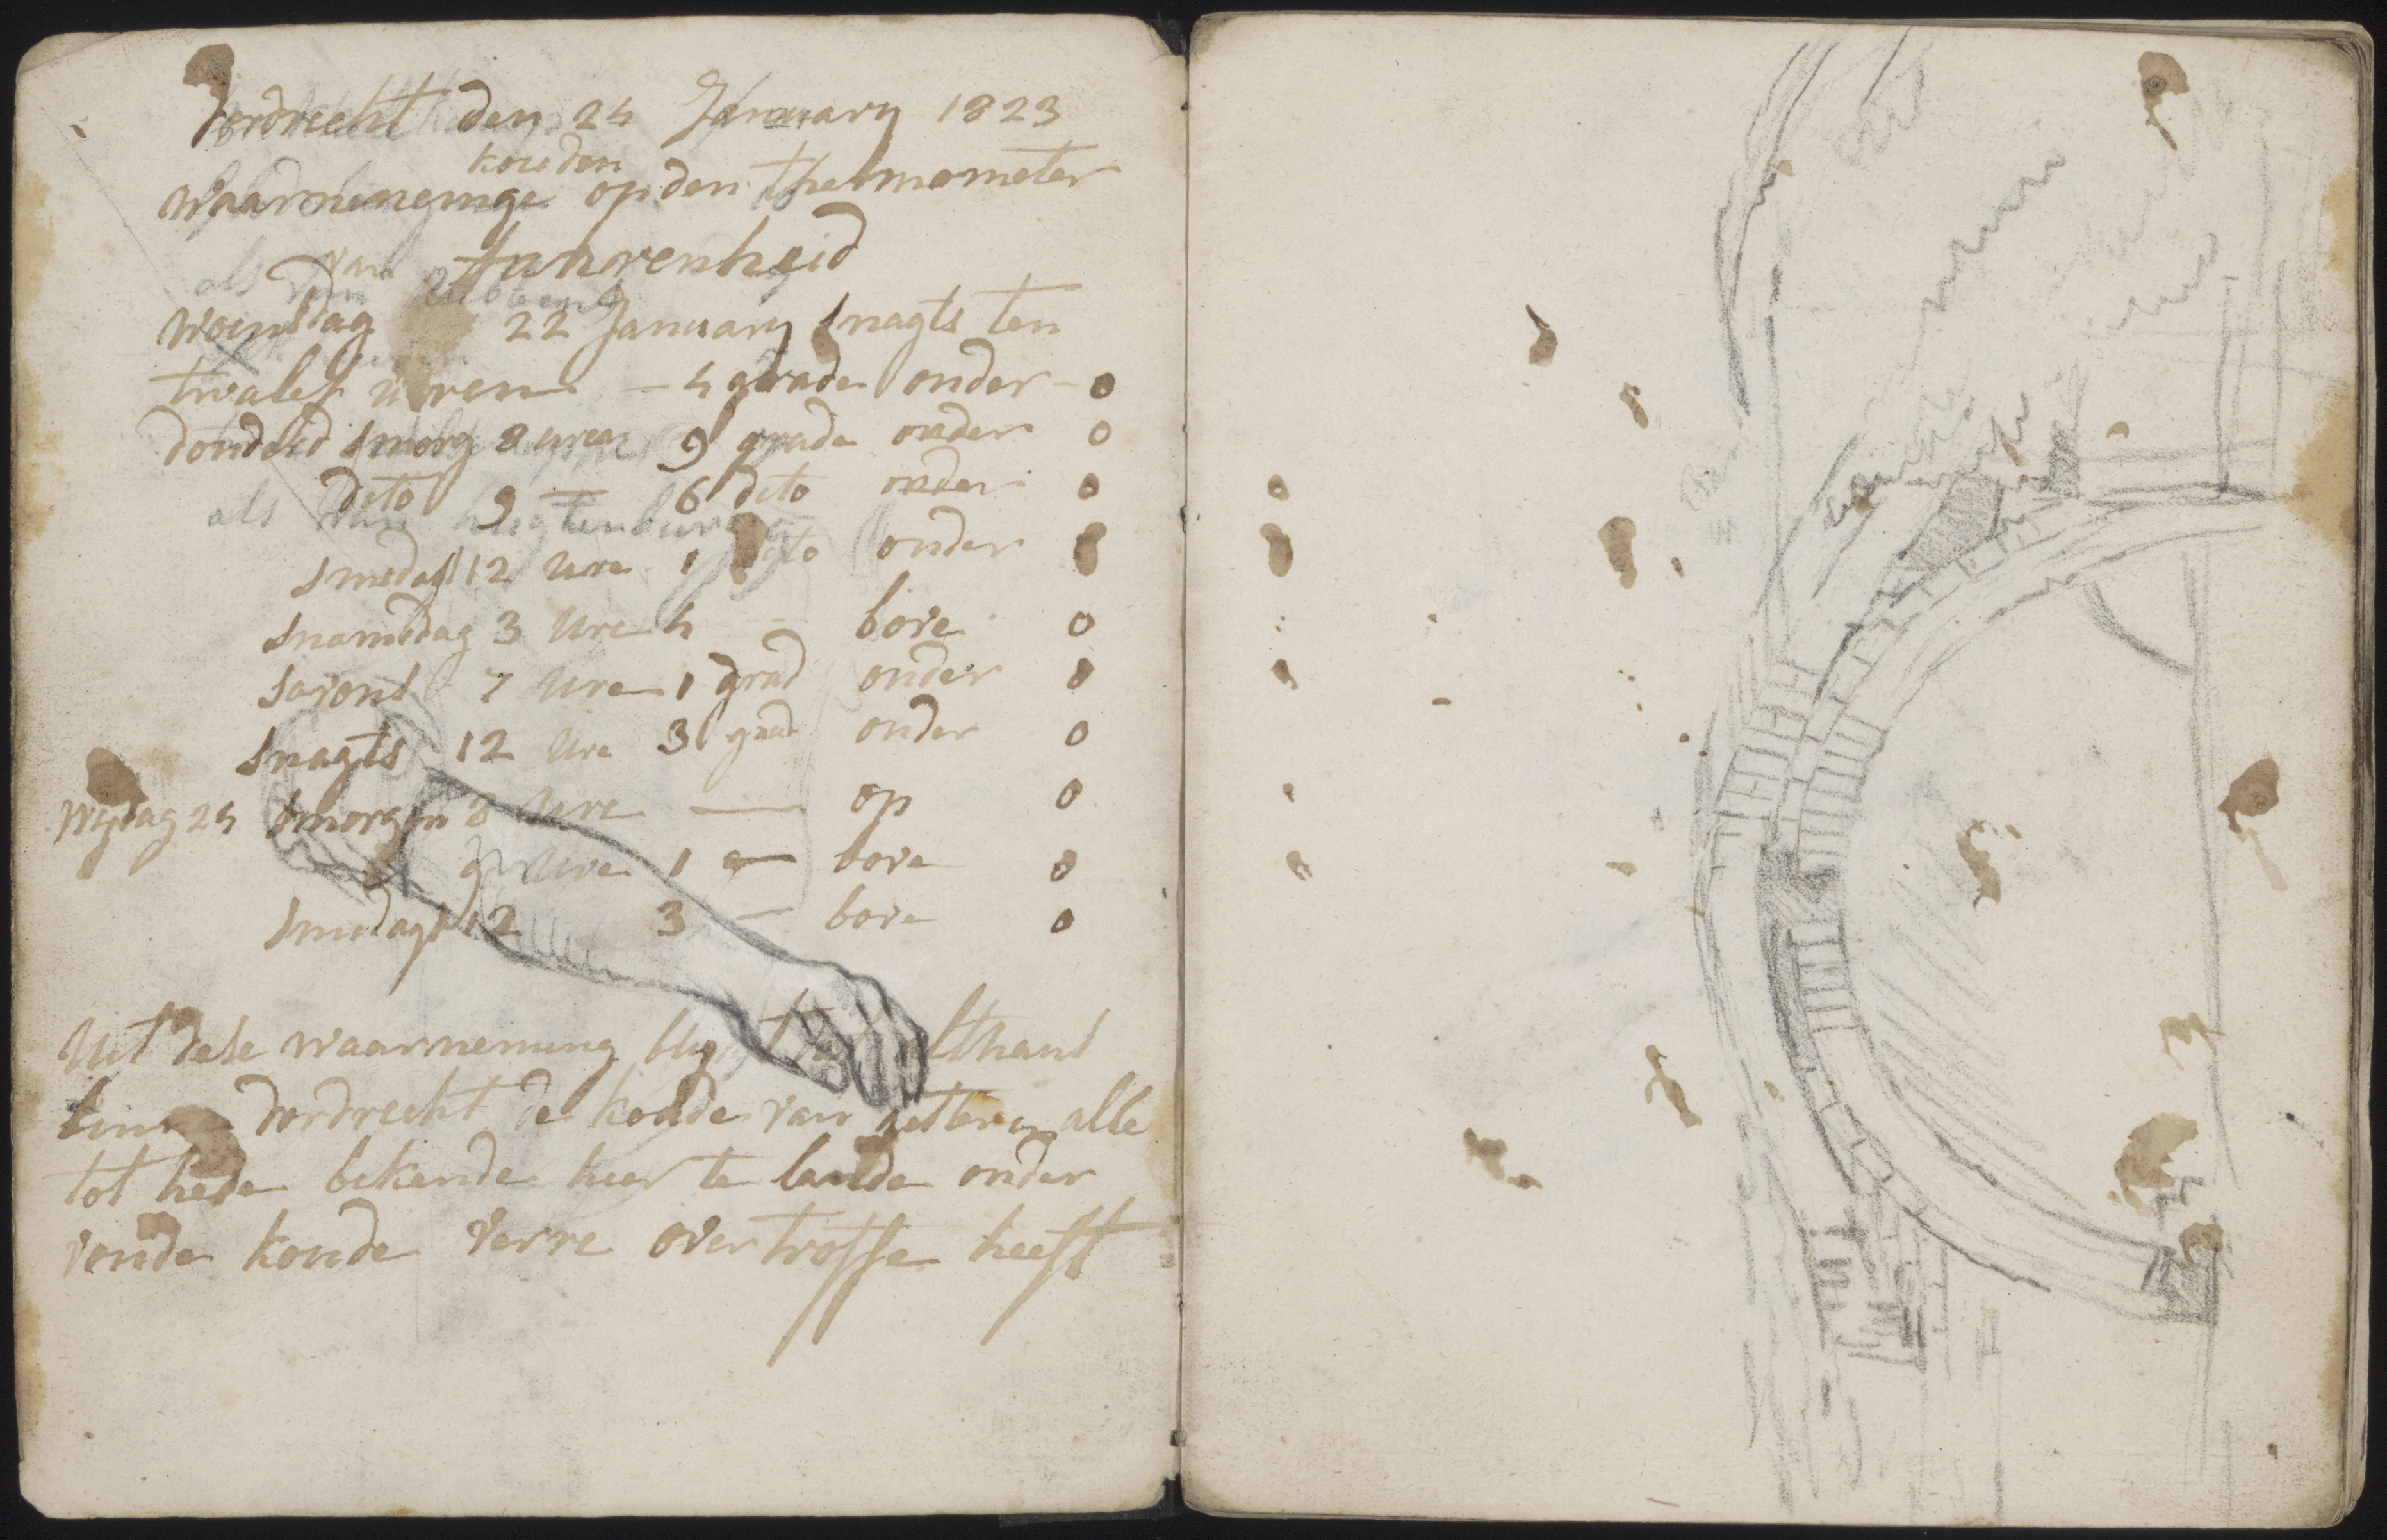 Dordrecht den 24 January 1823
kouden
waarnemeinge op den thermometer
van fahrenheid
als van
woensdag 22 January snagts ten
twalef uren — 4 grade onder — 0
donded smorg 8 uren 9 grade onder 0
dito 9 — 6 dito onder 0
als van hugtenburg
smedag 12 ure 1 dito onder 0
snamedag 3 ure 4 — bove 0
savons 7 ure 1 grad onder 0
snagts 12 ure 3 grad onder 0
vrydag 24 smorgen 8 ure — op 0
9 ure 1 — bove 0
smedags 12 3 — bove 0
Uit dese waarneming blykt althans
binne dordrecht de koude van alle
tot hede bekende hier te lande onder
vonde koude verre overtroffe heeft